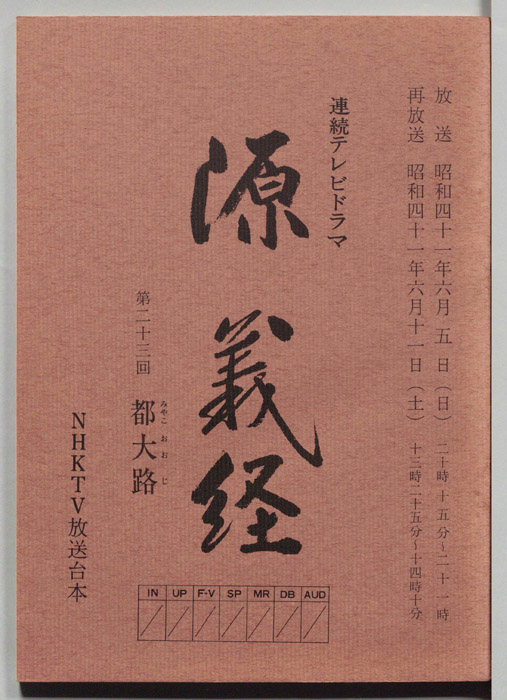 放送 昭和四十一年六月五日（日） 二十時十五分～二十一時
再放送 昭和四十一年六月十一日（土） 十三時二十五分～十四時十分
連続テレビドラマ
源義経
第二十三回 都大路
みやこおおじ
NHKTV放送台本
IN UP F-V SP MR DB AUD